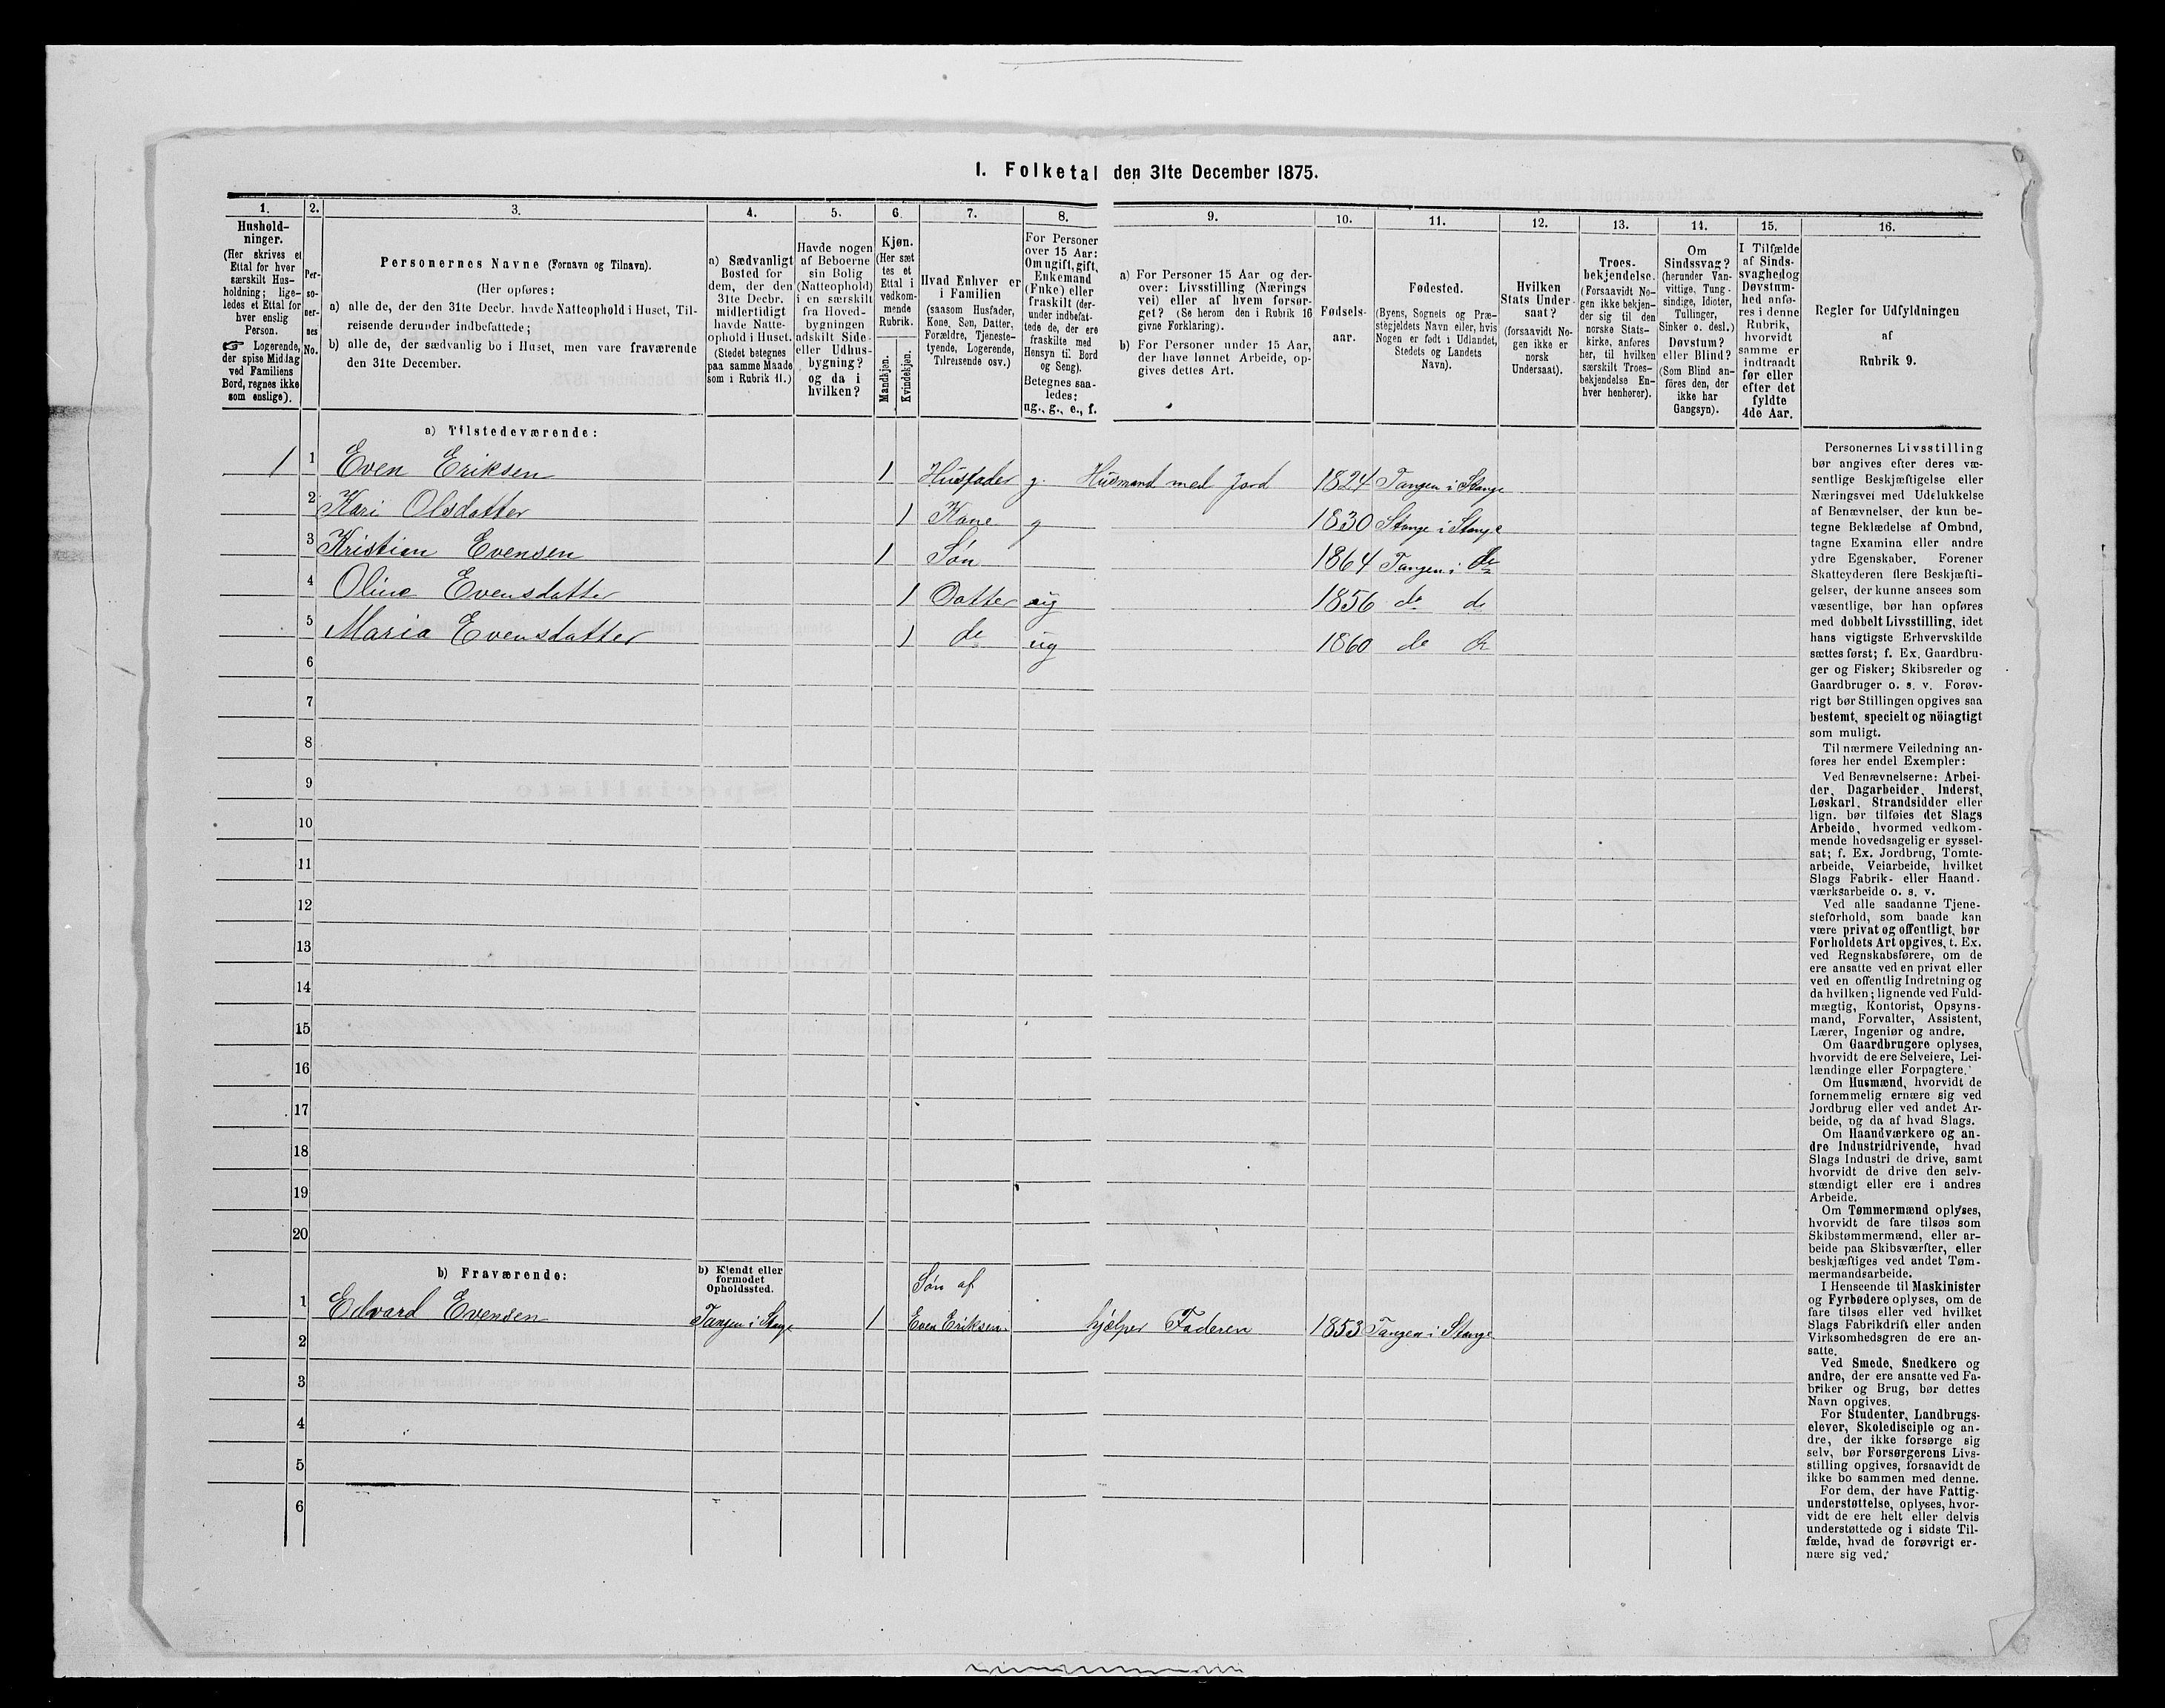 I. Folketal den 31te December 1875.
1. 2. 3. 4. 5. 6. 7. 8. 9. 10. 11. 12. 13. 14. 15. 16.
Hushold-
ninger.
(Her skrives et
Ettal for hver
særskilt Hus-
holdning; lige-
ledes et Ettal for
hver enslig
Person.
☞ Logerende,
der spise Middag
ved Familiens
Bord, regnes ikke
som enslige).
Per-
so-
ner-
nes
No.
Personernes Navne (Fornavn og Tilnavn).
(Her opføres:
a) alle de, der den 31te Decbr. havde Natteophold i Huset, Til-
reisende derunder indbefattede;
b) alle de, der sædvanlig bo i Huset, men vare fraværende
den 31te December.
a) Sædvanligt
Bosted for
dem, der den
31te Decbr.
midlertidigt
havde Natte-
ophold i Huset.
(Stedet betegnes
paa samme Maade
som i Rubrik 11.)
Havde nogen
af Beboerne
sin Bolig
(Natteophold)
i en særskilt
fra Hoved-
bygningen
adskilt Side-
eller Udhus-
bygning?
og da i
hvilken?
Kjøn.
(Her sæt
tes et
Ettal i
vedkom-
mende
Rubrik.
Mandkjøn.
Kvindekjøn.
Hvad Enhver er
i Familien
(saasom Husfader,
Kone, Søn, Datter,
Forældre, Tjeneste-
tyende, Logerende,
Tilreisende osv.)
For Personer
over 15 Aar:
Om ugift, gift,
Enkemand
(Enke) eller
fraskilt (der-
under indbefat-
tede de, der ere
fraskilte med
Hensyn til Bord
og Seng).
Betegnes saa-
ledes:
ug., g., e., f.
a) For Personer 15 Aar og der-
over: Livsstilling (Nærings
vei) eller af hvem forsør-
get? (Se herom den i Rubrik 16
givne Forklaring).
b) For Personer under 15 Aar,
der have lønnet Arbeide, op-
gives dettes Art.
Fødsels-
aar.
Fødested.
(Byens, Sognets og Præ-
stegjeldets Navn eller, hvis
Nogen er født i Udlandet,
Stedets og Landets
Navn).
Hvilken
Stats Under-
saat?
(forsaavidt No-
gen ikke er
norsk
Undersaat).
Troes-
bekjendelse.
(Forsaavidt No-
gen ikke bekjen-
der sig til den
norske Stats-
kirke, anføres
her, til hvilken
særskilt Troes-
bekjendelse En-
hver henhører).
Om
Sindssvag?
(herunder Van-
vittige, Tung-
sindige, Idioter,
Tullinger,
Sinker o. desl.)
Døvstum?
eller Blind?
(Som Blind an-
føres den, der
ikke har
Gangsyn).
I Tilfælde
af Sinds-
svaghed og
Døvstum-
hed anfø-
res i denne
Rubrik,
hvorvidt
samme er
indtraadt
før eller
efter det
fyldte
4de Aar.
Regler for Udfyldningen
af
Rubrik 9.
a) Tilstedeværende:
1 1 Even Eriksen 1 Husfader g. Husmand med Jord 1824 Tangen i Stange
2 Kari Olsdatter 1 Kone g 1830 Stange i Stange
3 Kristian Evensen 1 Søn 1864 Tangen i do
4 Oline Evensdatter 1 Datter ug 1856 do do
5 Maria Evensdatter 1 do ug 1860 do do
6
7
8
9
10
11
12
13
14
15
16
17
18
19
20
b) Fraværende:
b) Kjendt eller
formodet
Opholdssted.
Søn af
1 Edvard Evensen Tangen i Stange 1 Even Eriksen. hjelper Faderen 1853 Tangen i Stange
2
3
4
5
6
Personernes Livsstilling
bør angives efter deres væ-
sentlige Beskjæftigelse eller
Næringsvei med Udelukkelse
af Benævnelser, der kun be-
tegne Beklædelse af Ombud,
tagne Examina eller andre
ydre Egenskaber. Forener
Skatteyderen flere Beskjæfti-
gelser, der kunne ansees som
væsentlige, bør han opføres
med dobbelt Livsstilling, idet
hans vigtigste Erhvervskilde
sættes først; f. Ex. Gaardbru-
ger og Fisker; Skibsreder og
Gaardbruger o. s. v. Forøv-
rigt bør Stillingen opgives saa
bestemt, specielt og nöiagtigt
som muligt.
Til nærmere Veiledning an-
føres her endel Exempler:
Ved Benævnelserne: Arbei-
der, Dagarbeider, Inderst,
Løskarl, Strandsidder eller
lign. bør tilføies det Slags
Arbeide, hvormed vedkom-
mende hovedsagelig er syssel-
sat; f. Ex. Jordbrug, Tomte-
arbeide, Veiarbeide, hvilket
Slags Fabrik- eller Haand-
værksarbeide o. s. v.
Ved alle saadanne Tjene-
steforhold, som baade kan
være privat og offentligt, bør
Forholdets Art opgives, t. Ex.
ved Regnskabsførere, om de
ere ansatte ved en privat eller
ved en offentlig Indretning og
da hvilken; lignende ved Fuld-
mægtig, Kontorist, Opsyns-
mand, Forvalter, Assistent,
Lærer, Ingeniør og andre.
Om Gaardbrugere oplyses,
hvorvidt de ere Selveiere, Lei-
lændinge eller Forpagtere.
Om Husmænd, hvorvidt de
fornemmelig ernære sig ved
Jordbrug eller ved andet Ar-
beide, og da af hvad Slags.
Om Haandværkere og an-
dre Industridrivende, hvad
Slags Industri de drive, samt
hvorvidt de drive den selv-
stændigt eller ere i andres
Arbeide.
Om Tømmermænd oplyses,
hvorvidt de fare tilsøs som
Skibstømmermænd, eller ar-
beide paa Skibsværfter, eller
beskjæftiges ved andet Tøm-
mermandsarbeide.
I Henseende til Maskinister
og Fyrbødere oplyses, om de
fare tilsøs eller ved hvilket
Slags Fabrikdrift eller anden
Virksomhedsgren de ere an-
satte.
Ved Smede, Snedkere og
andre, der ere ansatte ved Fa-
briker og Brug, bør dettes
Navn opgives.
For Studenter, Landbrugs-
elever, Skoledisciple og an-
dre, der ikke forsørge sig
selv, bør Forsørgerens Livs-
stilling opgives, forsaavidt de
ikke bo sammen med denne.
For dem, der have Fattig-
understøttelse, oplyses, hvor-
vidt de ere helt eller delvis
understøttede og i sidste Til-
fælde, hvad de forøvrigt er-
nære sig ved.